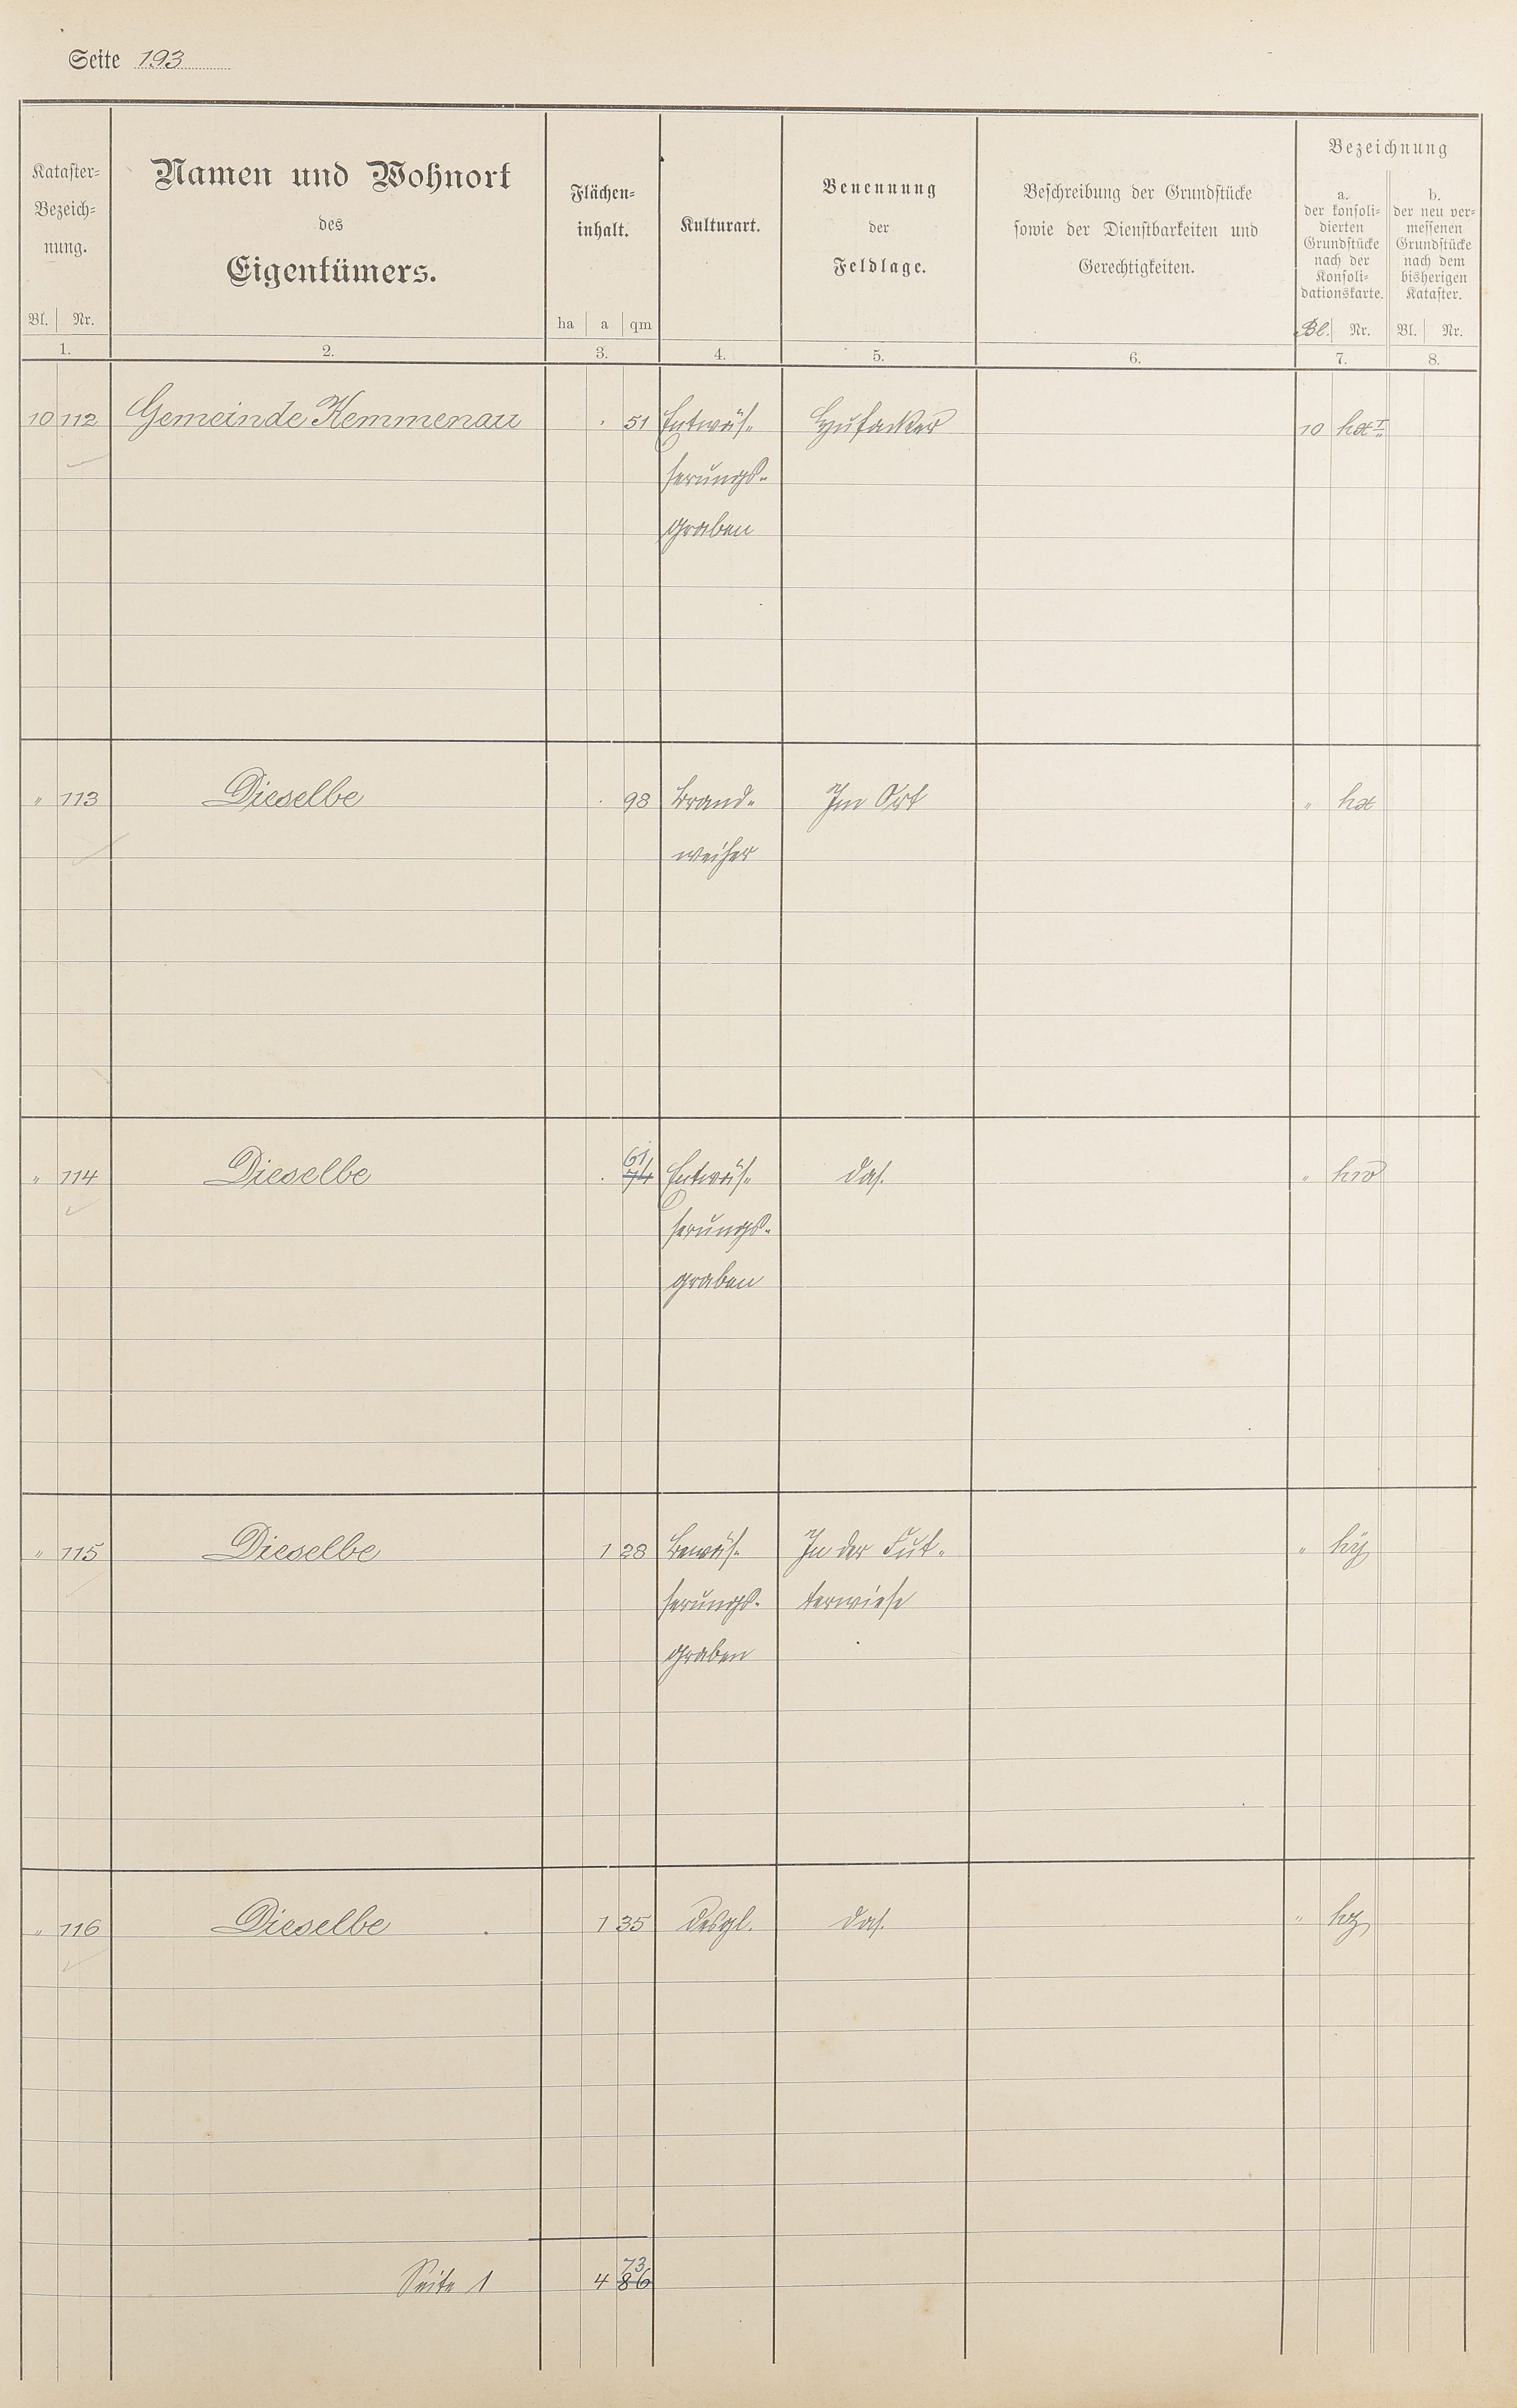 Seite 193
Kataster-
Bezeich-
nung.
Bl. Nr.
1.
Namen und Wohnort
des
Eigentümers.
2.
Flächen-
inhalt.
ha a qm
3.
Kulturart.
4.
Benennung
der
Feldlage.
5.
Beschreibung der Grundstücke
sowie der Dienstbarkeiten und
Gerechtigkeiten.
6.
Bezeichnung
a.
der konsoli-
dierten
Grundstücke
nach der
Konsoli-
dationskarte.
Bl. Nr.
7.
b.
der neu ver-
messenen
Grundstücke
nach dem
bisherigen
Kataster.
Bl. Nr.
8.
10 112 Gemeinde Kemmenau . 51 Entwäs- Hufacker 10
serungs-
graben
" 113 Dieselbe . 98 Brand- Im Ort " hx
weiher
61
" 114 Dieselbe . 74 Entwäs- das. " hw
serungs-
graben
" 115 Dieselbe 1 28 Bewäs- In der Fut- " hy
serungs- terwiese
graben
" 116 Dieselbe 1 35 desgl. das. " hz
73
Seite 1 4 86